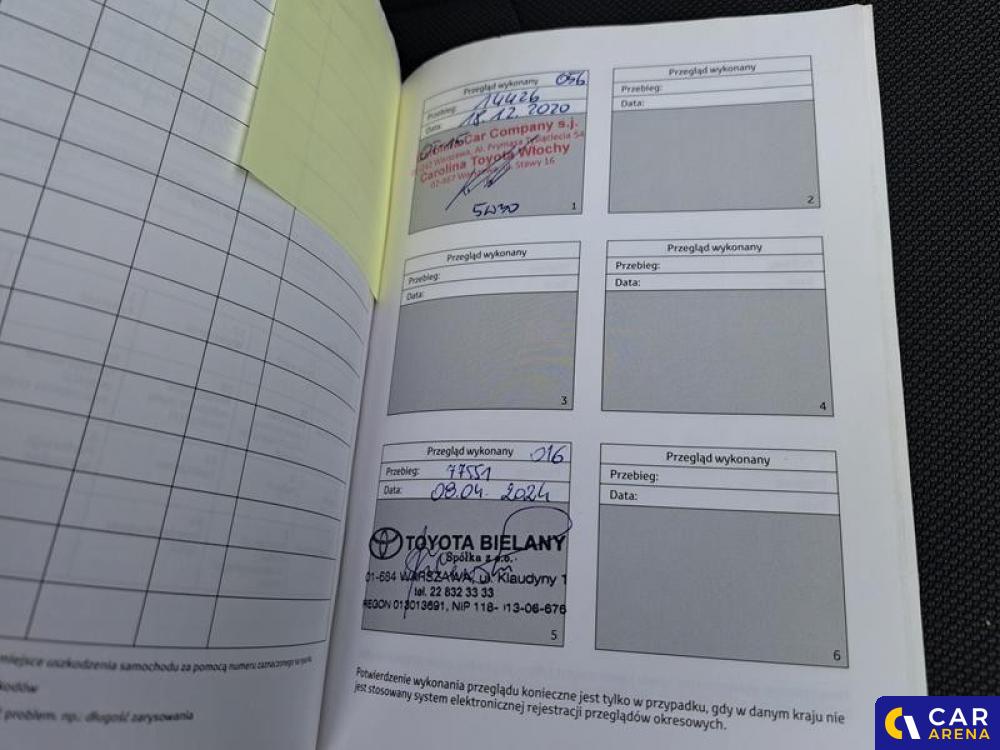 Przegląd wykonany 056
Przebieg: 14426
Data: 18.12.2020
Car Company s.j.
Warszawa, Al. Prymasa Tysiąclecia 54
Carolina Toyota Włochy
Stawy 16
5W30
1
Przegląd wykonany
Przebieg:
Data:
2
Przegląd wykonany
Przebieg:
Data:
3
Przegląd wykonany
Przebieg:
Data:
4
Przegląd wykonany 016
Przebieg: 77551
Data: 08.04.2024
TOYOTA BIELANY
Spółka z o.o.
01-684 WARSZAWA, ul. Klaudyny 1
tel. 22 832 33 33
REGON 013013691, NIP 118- 13-06-676
5
Przegląd wykonany
Przebieg:
Data:
6
miejsce uszkodzenia samochodu za pomocą numeru zaznaczonego w
problem. np.: długość zarysowania
Potwierdzenie wykonania przeglądu konieczne jest tylko w przypadku, gdy w danym kraju nie
jest stosowany system elektronicznej rejestracji przeglądów okresowych.
CAR
ARENA